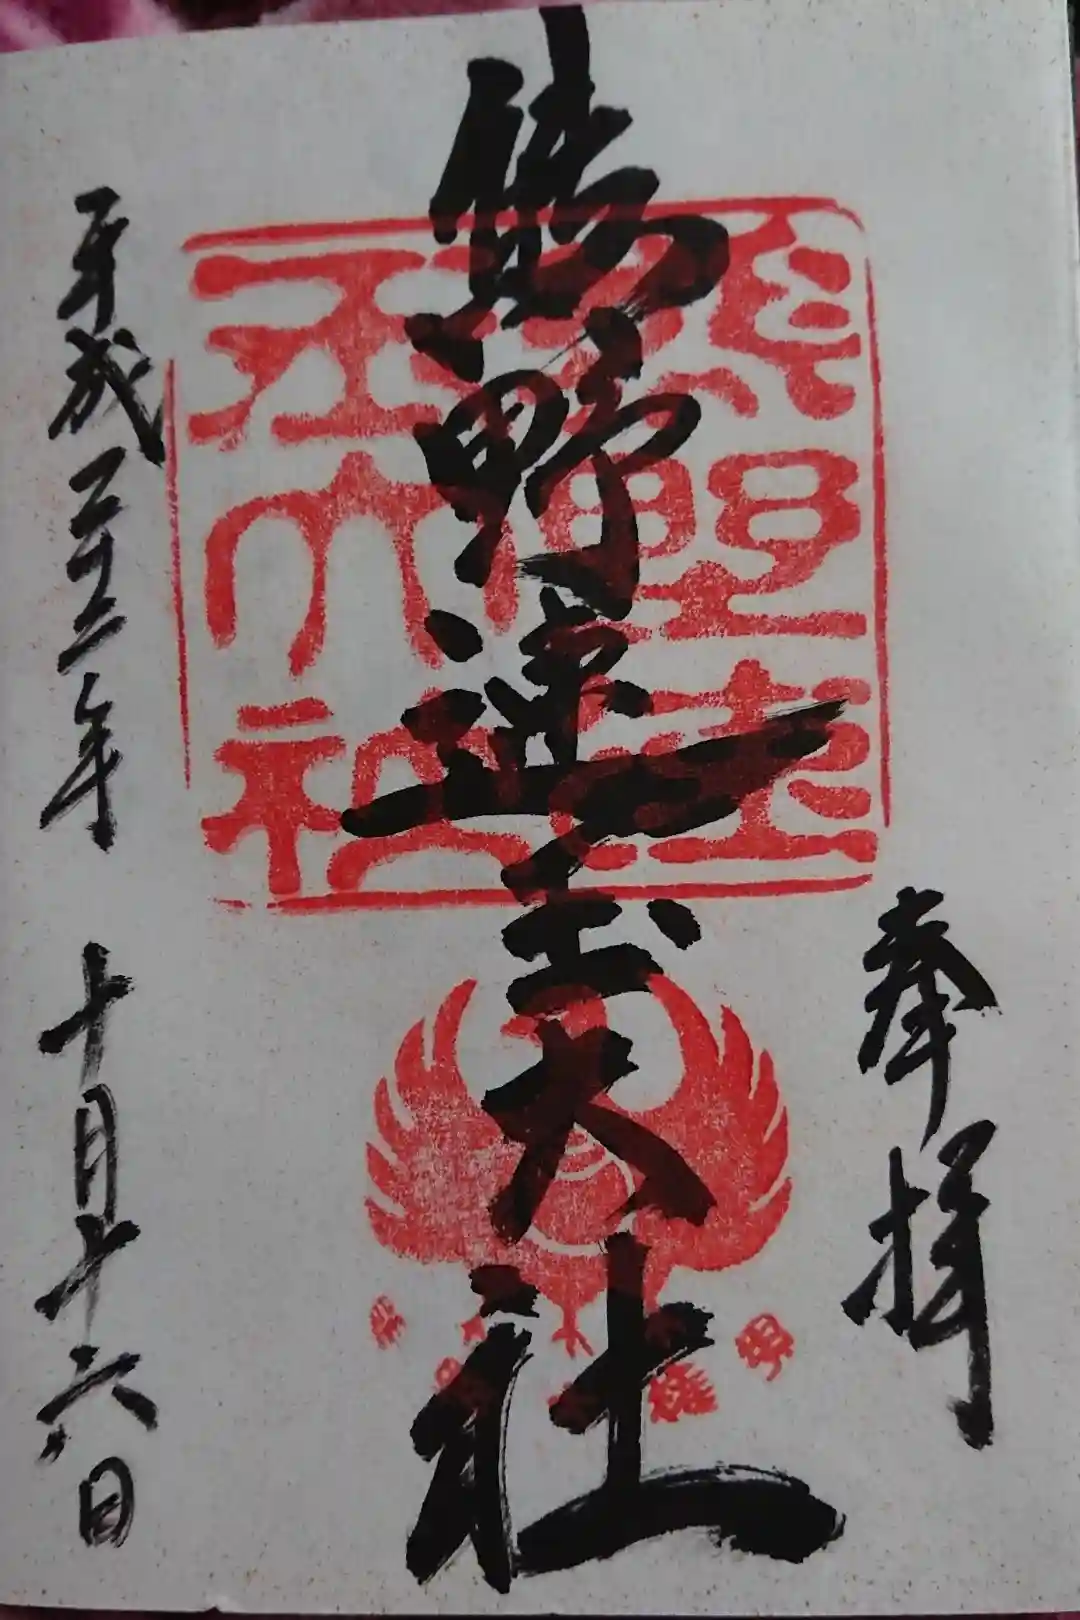 奉拝
熊野速玉大社
平成二十二年 十月十六日
熊野速
玉大社